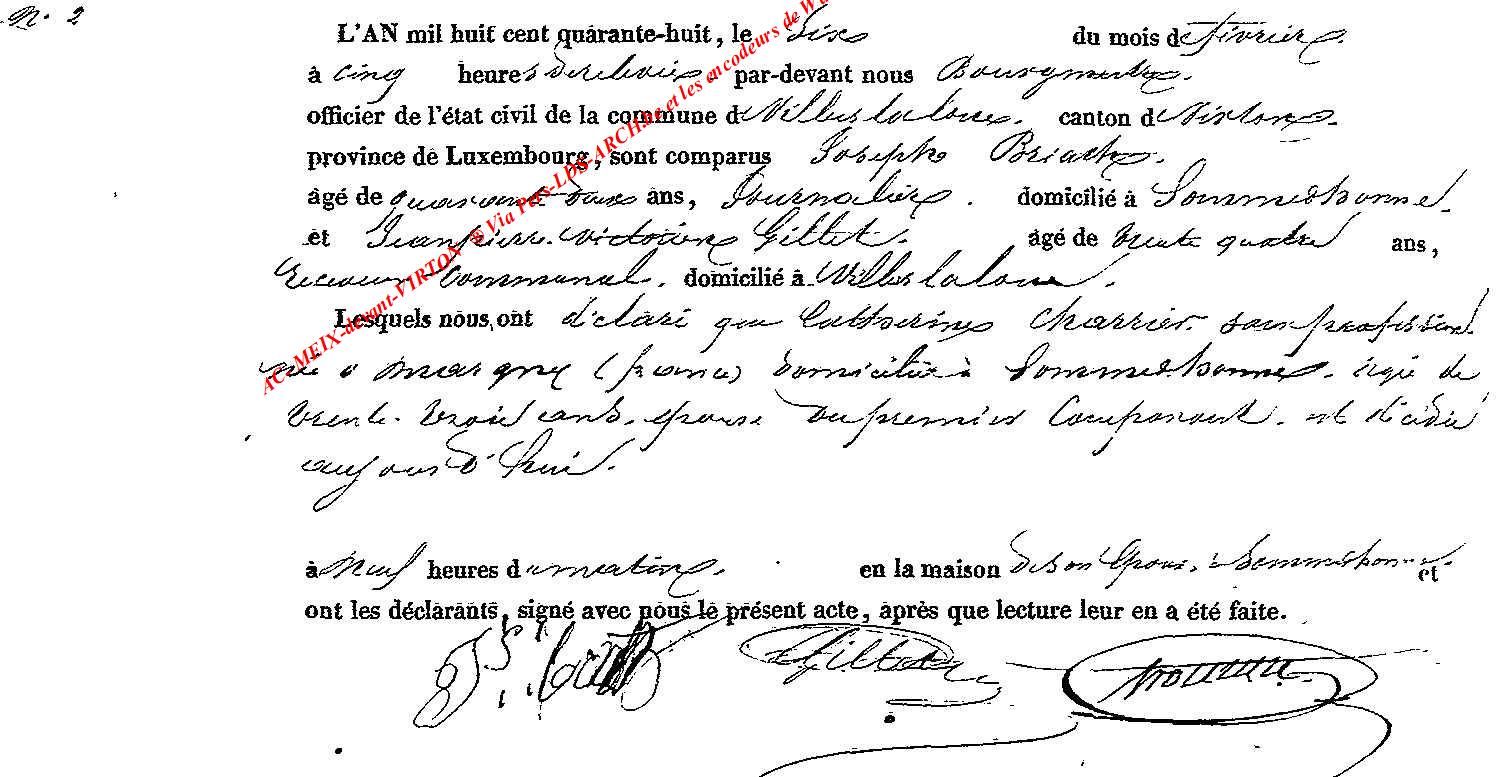 N.° 2
L'AN mil huit cent quarante-huit, le Six du mois de février
à cinq heures de relevée par-devant nous Bourgmestre
officier de l'état civil de la commune de Villers la loue. canton de Virton.
province de Luxembourg, sont comparus Joseph
âgé de quarante deux ans, Journalier. domicilié à Sommethonne.
et Jean pierre victorien Gillet. âgé de trente quatre ans,
receveur Communal. domicilié à Villers la loue.
Lesquels nous ont déclaré que Catherine Charrier sans profession
née à margny (france) domiciliée à Sommethonne. agée de
trente. trois ans. épouse du premier Comparant. est décédée
aujourd'hui.
à neuf heures du matin. en la maison de son Epoux. à Sommethonne et
ont les déclarants, signé avec nous le présent acte, après que lecture leur en a été faite.
Gillet
AC-MEIX-devant-VIRTON ® Via Pus-LDS-ARCH.be et les encodeurs de